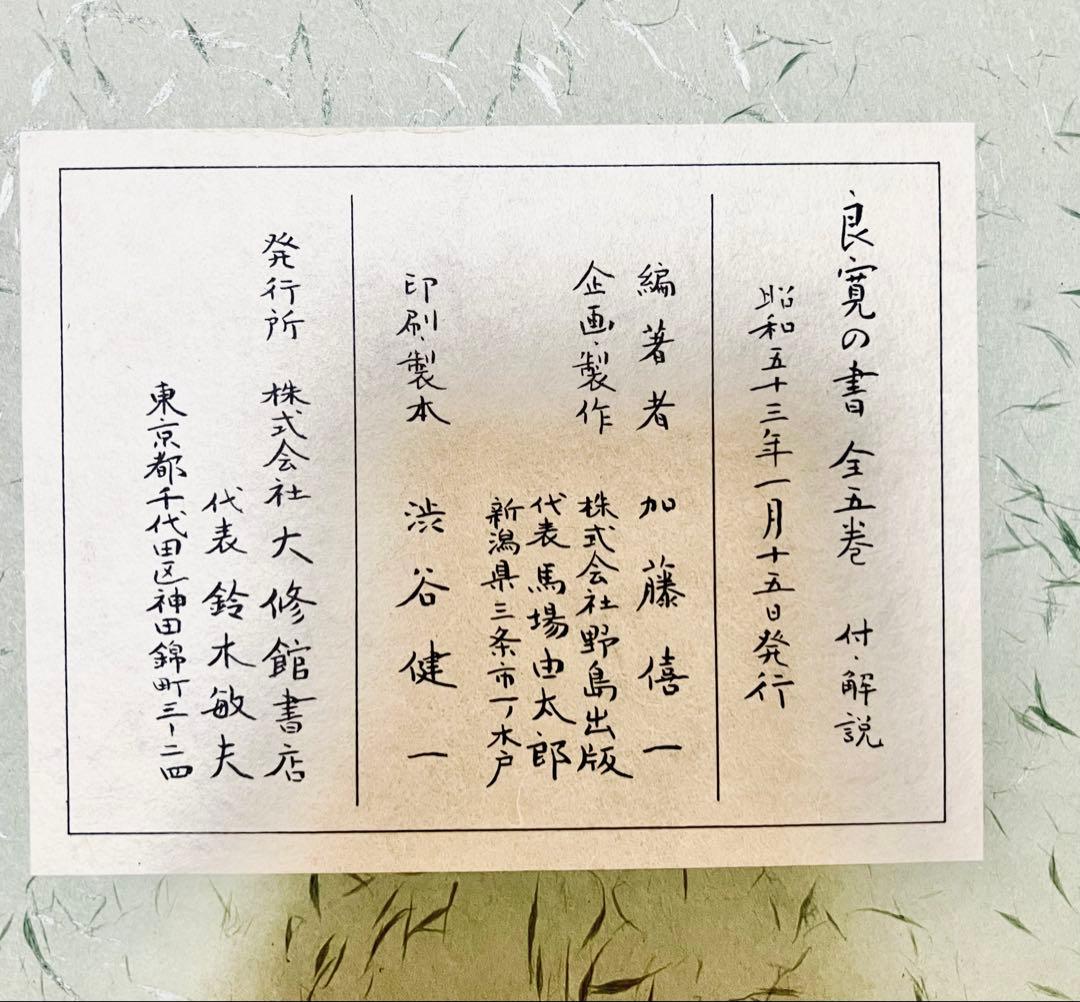 良寛の書 全五巻 付・解説
昭和五十三年一月十五日発行
編著者 加藤僖一
企画・製作 株式会社野島出版
代表 馬場由太郎
新潟県三条市一ノ木戸
印刷・製本 渋谷健一
発行所 株式会社大修館書店
代表 鈴木敏夫
東京都千代田区神田錦町三ー二四